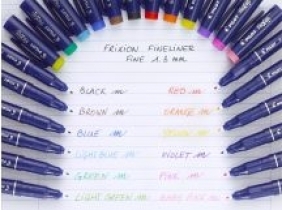 FRIXION FINELINER
FINE 1.3 mm
BLACK
RED
BROWN
ORANGE
BLUE
YELLOW
LIGHT BLUE
VIOLET
GREEN
PINK
LIGHT GREEN